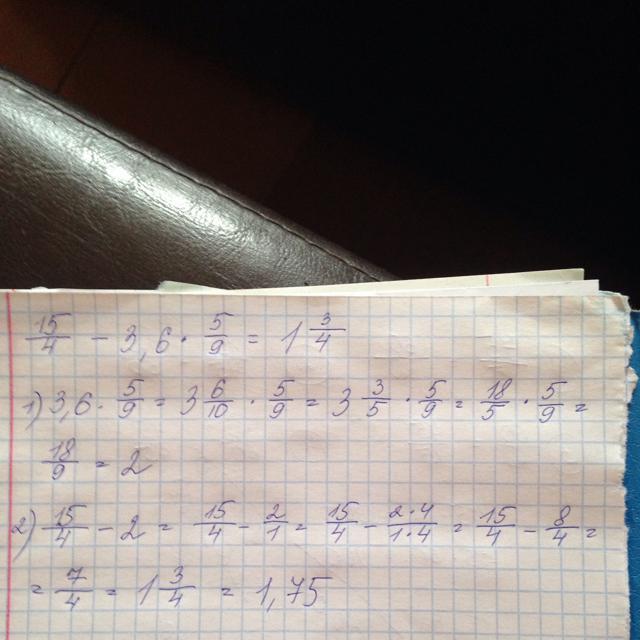 15/4 - 3,6 · 5/9 = 1 3/4
1) 3,6 · 5/9 = 3 6/10 · 5/9 = 3 3/5 · 5/9 = 18/5 · 5/9 =
18/9 = 2
2) 15/4 - 2 = 15/4 - 2/1 = 15/4 - 2·4/1·4 = 15/4 - 8/4 =
= 7/4 = 1 3/4 = 1,75